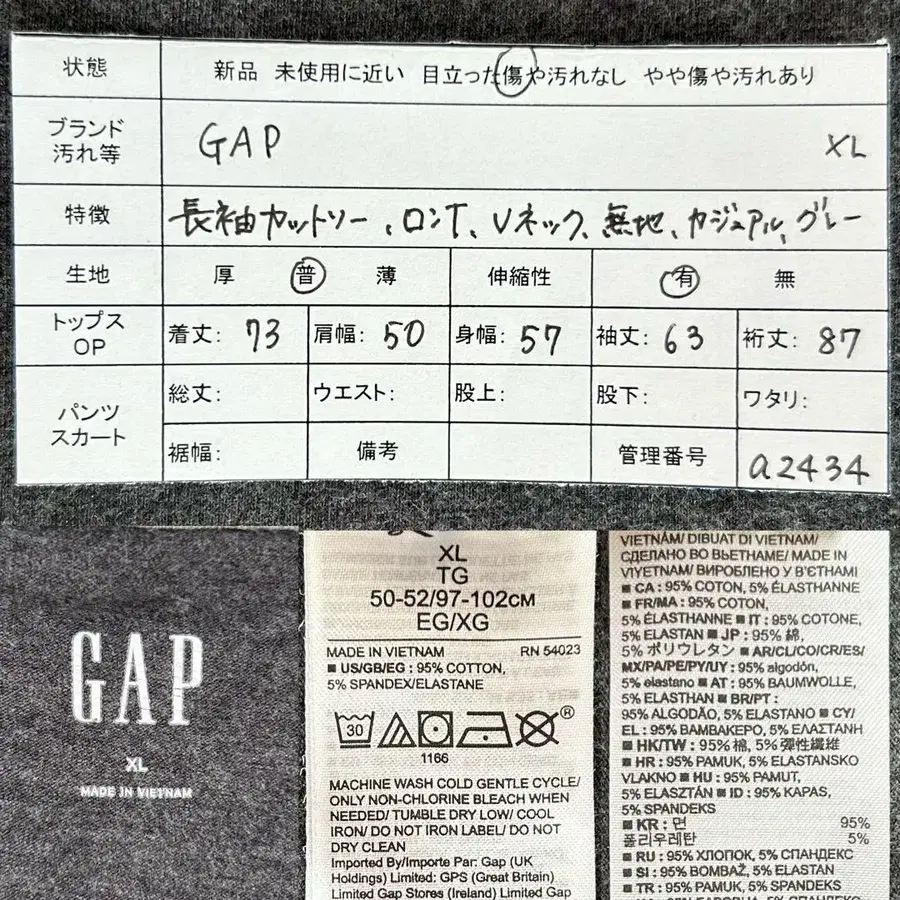 状態 新品 未使用に近い 目立った傷や汚れなし やや傷や汚れあり
ブランド
汚れ等
GAP XL
特徴 長袖カットソー、ロンT、Vネック、無地、カジュアル、グレー
生地 厚 普 薄 伸縮性 有 無
トップス
OP
着丈: 73 肩幅: 50 身幅: 57 袖丈: 63 裄丈: 87
パンツ
スカート
総丈: ウエスト: 股上: 股下: ワタリ:
裾幅: 備考 管理番号 a2434
GAP
XL
MADE IN VIETNAM
XL
TG
50-52/97-102CM
EG/XG
MADE IN VIETNAM RN 54023
■ US/GB/EG : 95% COTTON,
5% SPANDEX/ELASTANE
30
®
1166
MACHINE WASH COLD GENTLE CYCLE/
ONLY NON-CHLORINE BLEACH WHEN
NEEDED/ TUMBLE DRY LOW/ COOL
IRON/ DO NOT IRON LABEL/ DO NOT
DRY CLEAN
Imported By/Importe Par: Gap (UK
Holdings) Limited: GPS (Great Britain)
Limited Gap Stores (Ireland) Limited Gap
VIETNAM/ DIBUAT DI VIETNAM/
СДЕЛАНО ВО ВЬЕТНАМЕ/ MADE IN
VIYETNAM/ ВИРОБЛЕНО У В'ЄТНАМІ
■ CA : 95% COTON, 5% ÉLASTHANNE
■ FR/MA : 95% COTON,
5% ÉLASTHANNE ■ IT : 95% COTONE,
5% ELASTAN ■ JP : 95% 綿,
5% ポリウレタン ■ AR/CL/CO/CR/ES/
MX/PA/PE/PY/UY : 95% algodón,
5% elastano ■ AT : 95% BAUMWOLLE,
5% ELASTHAN ■ BR/PT :
95% ALGODÃO, 5% ELASTANO ■ CY/
EL : 95% ΒΑΜΒΑΚΕΡΟ, 5% ΕΛΑΣΤΑΝΗ
■ HK/TW : 95% 棉, 5% 彈性纖維
■ HR : 95% PAMUK, 5% ELASTANSKO
VLAKNO ■ HU : 95% PAMUT,
5% ELASZTÁN ■ ID : 95% KAPAS,
5% SPANDEKS
■ KR : 면 95%
폴리우레탄 5%
■ RU : 95% ХЛОПОК, 5% СПАНДЕКС
■ SI : 95% BOMBAŽ, 5% ELASTAN
■ TR : 95% PAMUK, 5% SPANDEKS